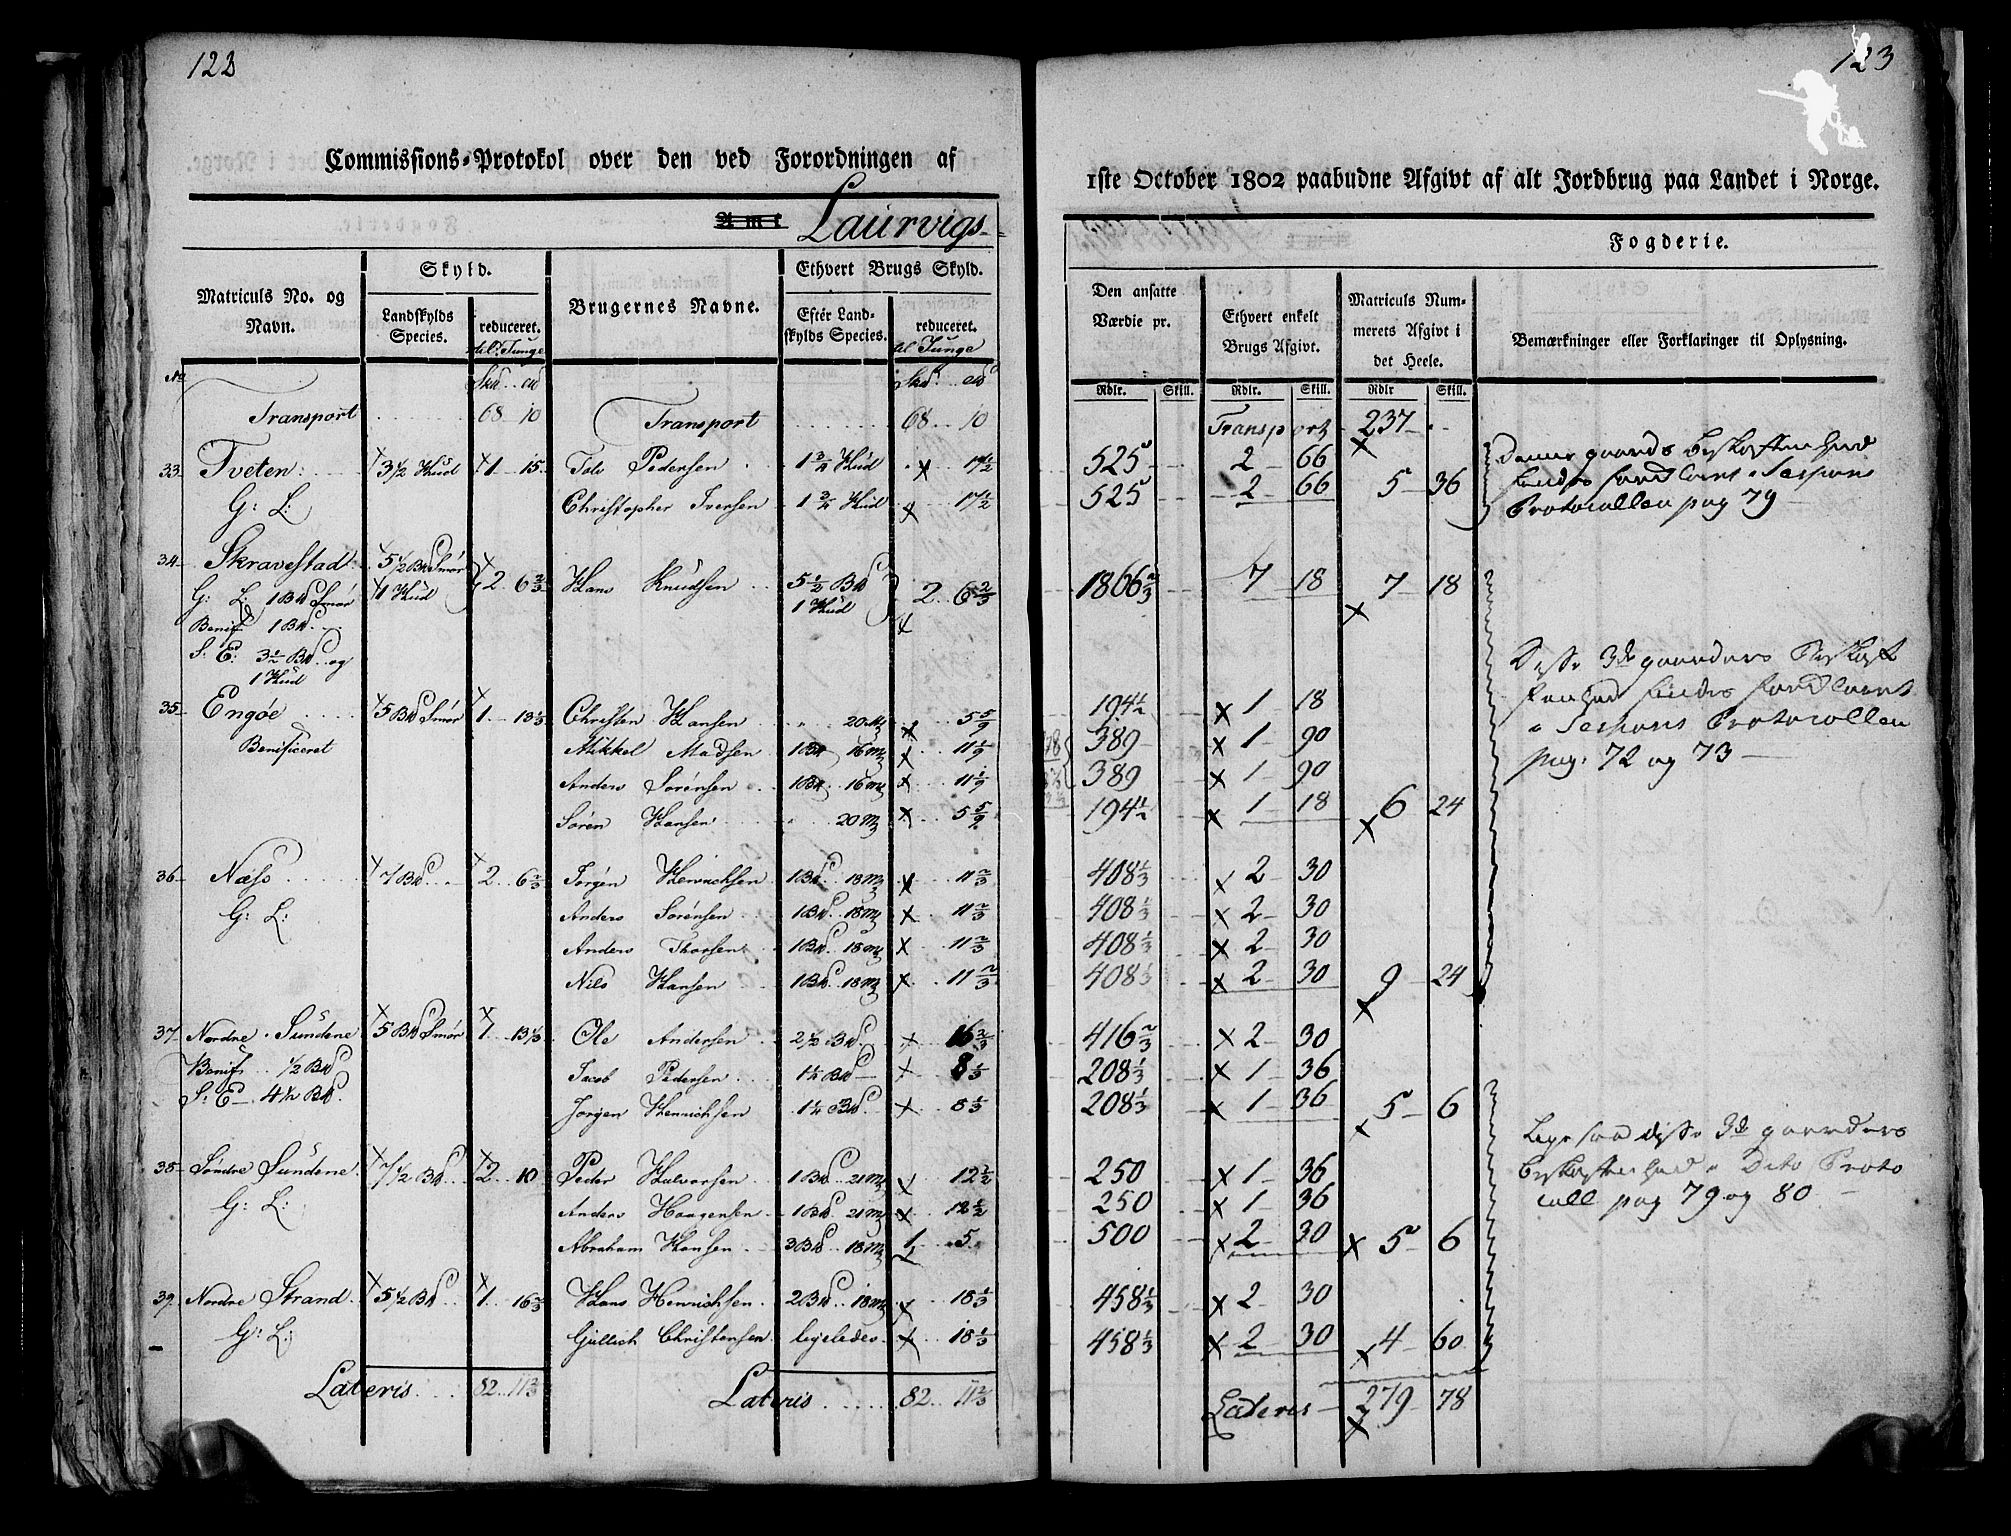 122
Commissions-Protokol over den ved Forordningen af
Amt Laurvigs-
Matriculs No. og Navn.
Skyld.
Landskylds Species.
reduceret. til Tunge
Brugernes Navne.
Ethvert Brugs Skyld.
Efter Landskylds Species.
reduceret. til Tunge
No
Transport 68 10 Transport 68 10
33 Tveten 3½ Hud 1 15 Pedersen 1¾ Hud 17½
G: L: Christopher Iversen 1¾ Hud 17½
34 Skravestad 5½ Bd Smør 2 6⅔ Hans Knudsen 5½ Bd 2 6⅔
G: L: 1 Bd Smør 1 Hud 1 Hud
Benif 1 Bd
S: E: 3½ Bd og
1 Hud
35 Engøe 5 Bd Smør 1 13⅓ Christen Hansen 20 5 5/9
Benificeret Mikkel Madsen 1 Bd 16 11 1/9
Anders Sørensen 1 Bd 16 11 1/9
Søren Hansen 20 5 5/9
36 Næss 7 Bd 2 6⅔ Jørgen Henrichsen 1 Bd 18 11⅔
G: L: Anders Sørensen 1 Bd 18 11⅔
Anders Thorsen 1 Bd 18 11⅔
Nils Hansen 1 Bd 18 11⅔
37 Nordre Sundene 5 Bd Smør 1 13⅓ Ole Andersen 2½ Bd 16⅔
Benif ½ Bd Jacob Pedersen 1¼ Bd 8⅓
S: E 4½ Bd Jørgen Henrichsen 1¼ Bd 8⅓
38 Søndre Sundene 7½ Bd 2 10 Peder Halvorsen 1 Bd 21 12½
G: L: Anders Haagensen 1 Bd 21 12½
Abraham Hansen 3 Bd 18 1 5
39 Nordre Strand 5½ Bd 1 16⅔ Hans Henrichsen 2 Bd 18 18⅓
G: L: Gullich Christensen ligeledes 18⅓
Lateris 82 11⅔ Lateris 82 11⅔
123
1ste October 1802 paabudne Afgivt af alt Jordbrug paa Landet i Norge.
Fogderie.
Den ansatte Værdie pr.
Ethvert enkelt Brugs Afgivt.
Matriculs Nummerets Afgivt i det Heele.
Bemærkninger eller Forklaringer til Oplysning.
Rdlr. Skill. Rdlr. Skill. Rdlr Skill.
Transport 237
525 2 66
525 2 66 5 36
Denne gaards beskaffenhed
findes forklaret i Sessions
Protocollen pag 79
1866⅔ 7 18 7 18
Disse 3de gaarders Beskaf
fenhed findes forklaret
i Sessions Protocollen
pag: 72 og 73
194½ 1 18
389 1 90
389 1 90
194½ 1 18 6 24
408⅓ 2 30
408⅓ 2 30
408⅓ 2 30
408⅓ 2 30 9 24
416⅔ 2 30
208⅓ 1 36
208⅓ 1 36 5 6
Ligesaa disse 3de gaarders
beskaffenhed i Dito Proto
coll pag 79 og 80
250 1 36
250 1 36
500 2 30 5 6
458⅓ 2 30
458⅓ 2 30 4 60
Lateris 279 78